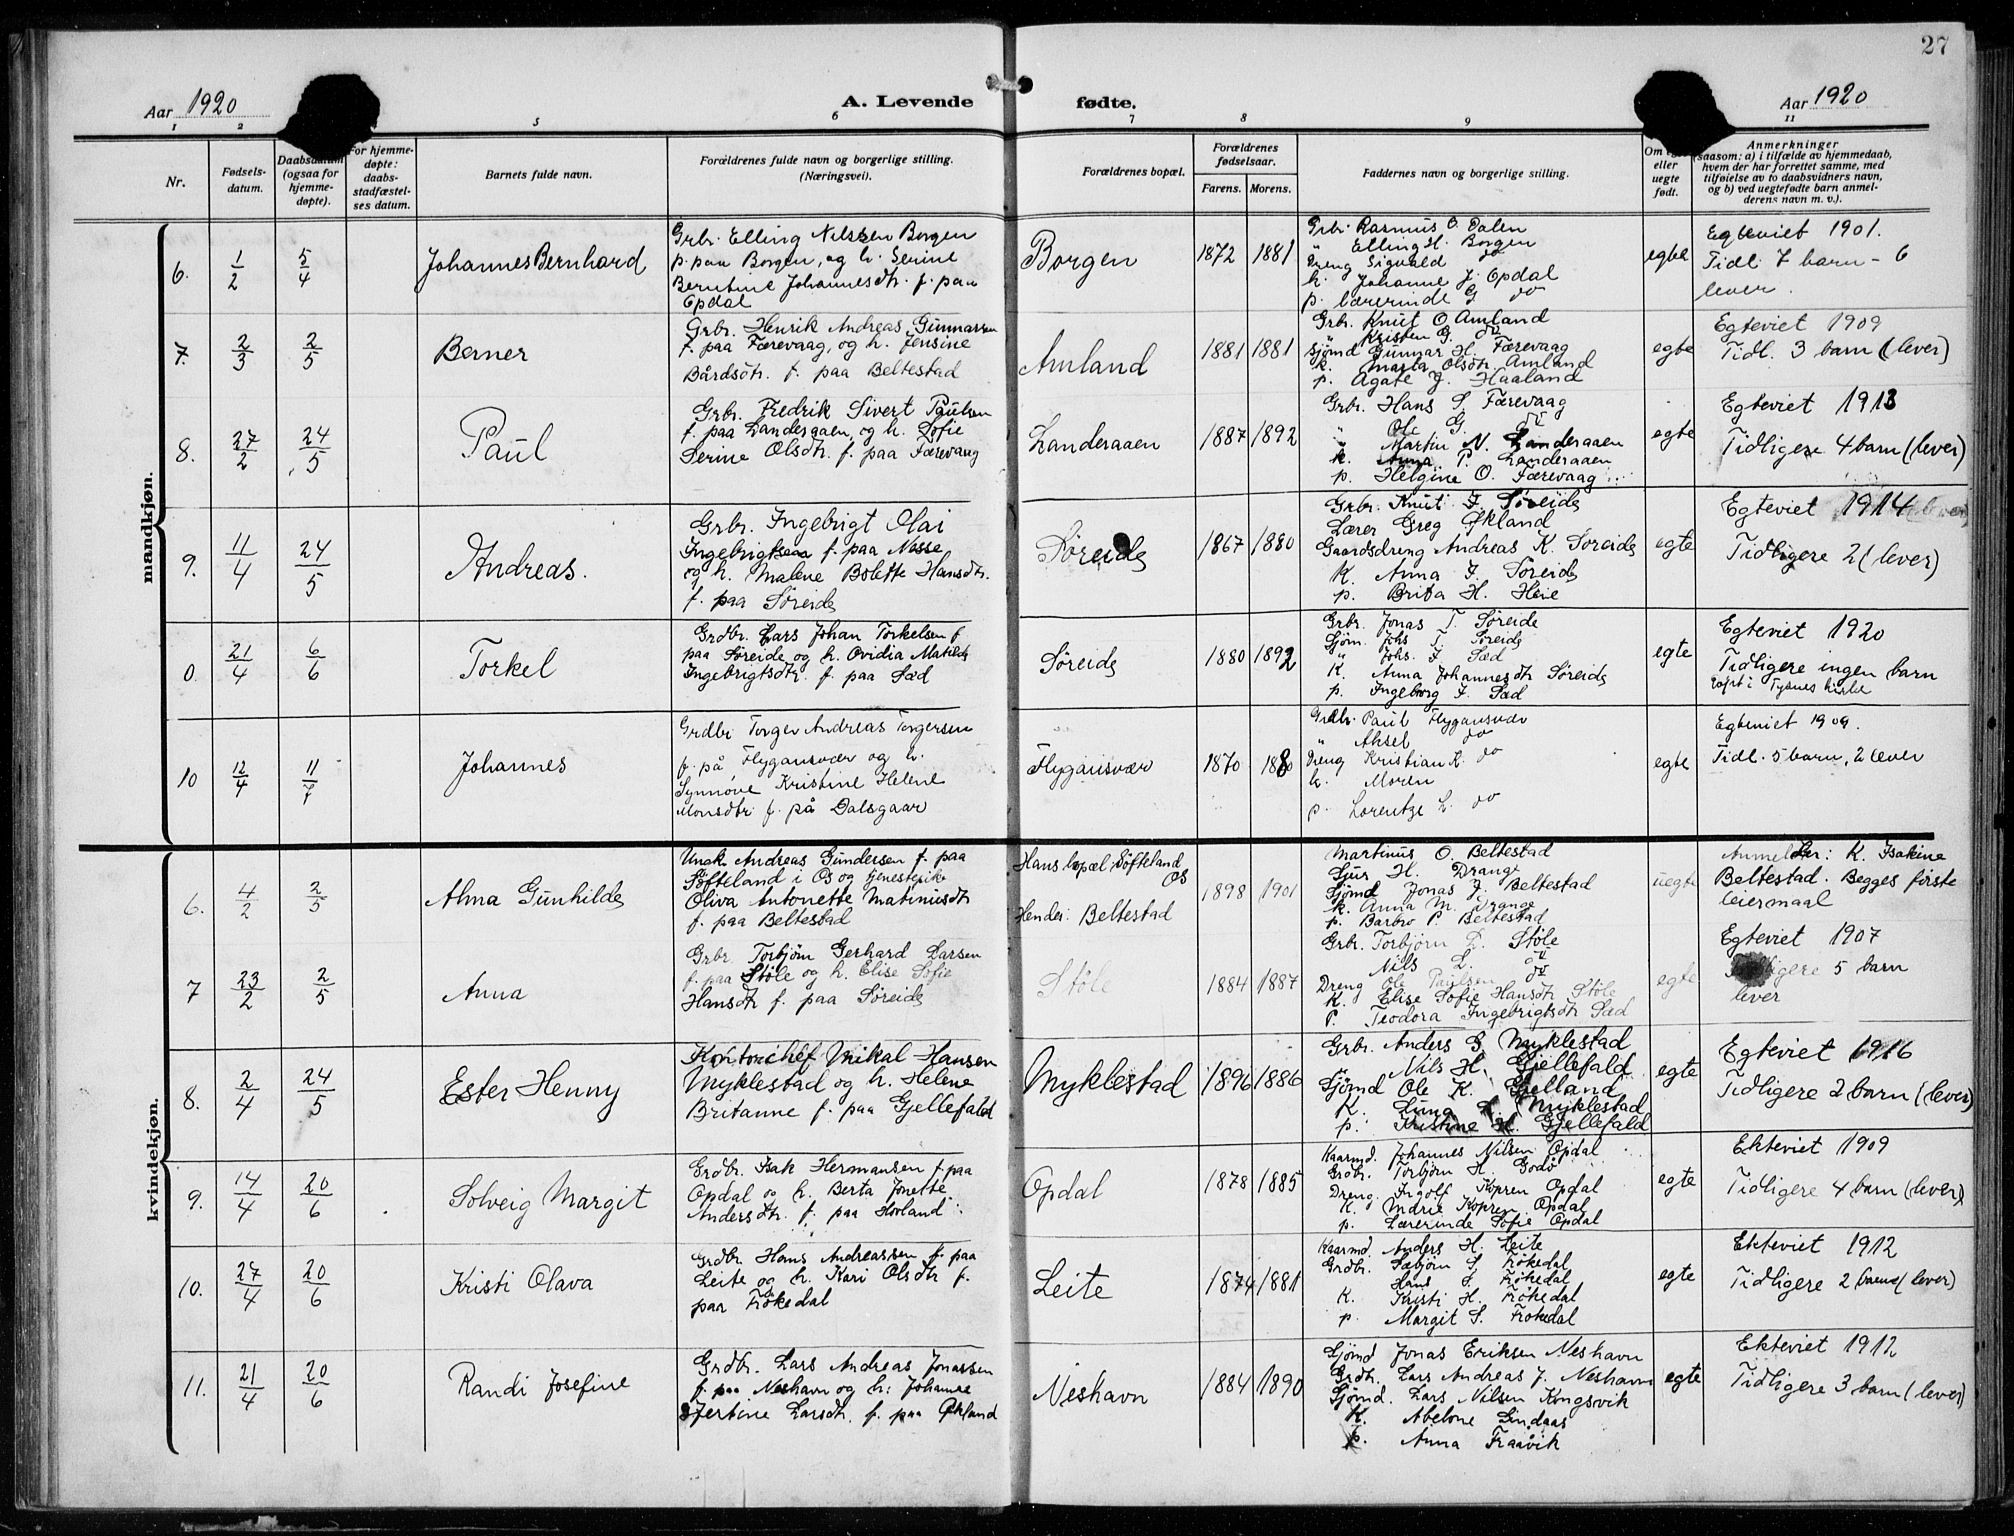 27
Aar 1920
A. Levende
fødte.
Aar 1920
1 2 5 6 7 8 9 11
Nr.
Fødsels-
datum.
(ogsaa for
hjemme-
døpte).
For hjemme-
døpte:
daabs-
stadfæstel-
ses datum.
Barnets fulde navn.
Forældrenes fulde navn og borgerlige stilling.
(Næringsvei).
Forældrenes bopæl.
Forældrenes
fødselsaar.
Farens. Morens.
Faddernes navn og borgerlige stilling.
eller
uegte
født.
Anmerkninger
(saasom: a) i tilfælde av hjemmedaab,
hvem der har forrettet samme, med
tilføielse av to daabsvidners navn,
og b) ved uegtefødte barn anmel-
derens navn m. v.).
mandkjøn.
6.
1/2
5/4
Johannes Bernhard
Grb. Elling Nilssen Borgen
p. paa Borgen, og h. Serine
Berntine Johannesdtr. f. paa
Opdal
Borgen
1872 1881
Grb. Rasmus O. Dalen
" Elling H. Borgen
Dreng Sigvald do
k. Johanne J. Opdal
p. lærerinde G do
egte
Egteviet 1901.
Tidl. 7 barn - 6
lever.
7.
2/3
2/5
Berner
Grb. Henrik Andreas Gunnarsen
f. paa Færevaag, og h. Jensine
Bårdsdtr. f. paa Beltestad
Amland
1881 1881
Grb. Knut O. Amland
" Kristen G. do
Sjømd Gunnar H. Færevaag
k. Marta Olsdtr. Amland
p. Agate J. Haaland
egte
Egteviet 1909
Tidl. 3 barn (lever)
8.
27/2
24/5
Paul
Grb. Fredrik Sivert Paulsen
f. paa Landeraaen, og h. Sofie
Serine Olsdtr. f. paa Færevaag
Landeraaen
1887 1892
Grb. Hans S. Færevaag
" Ole G. do
" Martin N. Landeraaen
k. Anna P. Landeraaen
p. Helgine O. Færevaag
egte
Egteviet 1913
Tidligere 4 barn (lever)
9.
11/4
24/5
Andreas.
Grb. Ingebrigt Olai
Ingebrigtsen f. paa Nesse
og h. Malene Bolette Hansdtr.
f. paa Søreide
Søreide
1867 1880
Grb. Knut J. Søreide
Lærer Greg Økland
Gaardsdreng Andreas K. Søreide
K. Anna J. Søreide
p. Brita H. Heie
egte
Egteviet 1914
Tidligere 2 (lever)
0.
21/4
6/6
Torkel
Grdbr. Lars Johan Torkelsen f.
paa Søreide og h. Ovidia Matilde
Ingebrigtsdtr. f. paa Sæd
Søreide
1880 1892
Grb. Jonas T. Søreide
Sjøm. Johs T. Søreide
" Johs. J. Sæd
K. Anna Johannesdtr Søreide
p. Ingeborg J. Sæd
egte
Egteviet 1920
Tidligere ingen barn
Døpt i Tysnes kirke
10
12/4
11/7
Johannes
Grdbr Torger Andreas Torgersen
f. på Flygansvær og h.
Synnøve Kristine Helene
Monsdtr. f. på Dalsgaar
Flygansvær
1870 1880
Grdbr. Paul Flygansvær
" Aksel do
Dreng Kristian K. do
k. Moren
p. Lorentze L. do
egte
Egteviet 1909.
Tidl. 5 barn, 2 lever
kvindekjøn.
6.
4/2
2/5
Alma Gunhilde
Ungk. Andreas Gundersen f. paa
Søfteland i Os og tjenestepike
Oliva Antonette Matiniusdtr
f. paa Beltestad
Hans bopæl: Søfteland
Os
Hendes: Beltestad
1898 1901
Martinus O. Beltestad
Sjur H. Drange
Sjømd Jonas J. Beltestad
k. Anna M. Drange
p. Barbro P. Beltestad
uegte
Anmelder: K. Isakine
Beltestad. Begges første
leiermaal
7
23/2
2/5
Anna
Grbr Torbjørn Gerhard Larsen
f. paa Støle og h. Elise Sofie
Hansdtr f. paa Søreide
Støle
1884 1887
Grb. Torbjørn L. Støle
Nils L. do
Dreng Ole Paulsen do
K. Elise Sofie Hansdtr Støle
P. Teodora Ingebrigtsdtr Sæd
egte
Egteviet 1907
Tidligere 5 barn
lever
8.
2/4
24/5
Ester Henny
Kontorchef Mikal Hansen
Myklestad og h. Helene
Britanne f. paa Gjellefald
Myklestad
1896 1886
Grb. Anders G. Myklestad
" Nils H. Gjellefald
Sjømd Ole K. Gjelland
K. Myklestad
p. Kristine H. Gjellefald
egte
Egteviet 1916
Tidligere 2 barn (lever)
9.
14/4
20/6
Solveig Margit
Grdbr. Isak Hermansen f. paa
Opdal og h. Berta Jonette
Andersdtr. f. paa Hovland
Opdal
1878 1885
Kaarmd. Johannes Nilsen Opdal
Grdbr. Torbjørn H. Godø
Dreng. Ingolf Kopren Opdal
K. Indrie Kopren Opdal
p. Lærerinde Sofie Opdal
egte
Ekteviet 1909
Tidligere 4 barn (lever)
10.
27/4
20/6
Kristi Olava
Grdbr. Hans Andreassen f. paa
Leite og h. Kari Olsdtr f.
paa Frøkedal
Leite
1874 1881
Kaarmd. Anders H. Leite
Grdbr. Sæbjørn S. Frøkedal
Hans S. Frøkedal
K. Kristi H. Frøkedal
p. Margit S. Frøkedal
egte
Ekteviet 1912
Tidligere 2 barn (lever)
11.
21/4
20/6
Randi Josefine
Grdbr. Lars Andreas Jonassen
f. paa Neshavn og h: Johanne
Jertine Larsdtr. f. paa Økland
Neshavn
1884 1890
Sjømd Jonas Eriksen Neshavn
Grdbr. Lars Andreas J. Neshavn
Sjømd. Lars Nilsen Kongsvik
K. Abelone Lindaas
p. Anna Fraavik
egte
Ekteviet 1912
Tidligere 3 barn (lever)